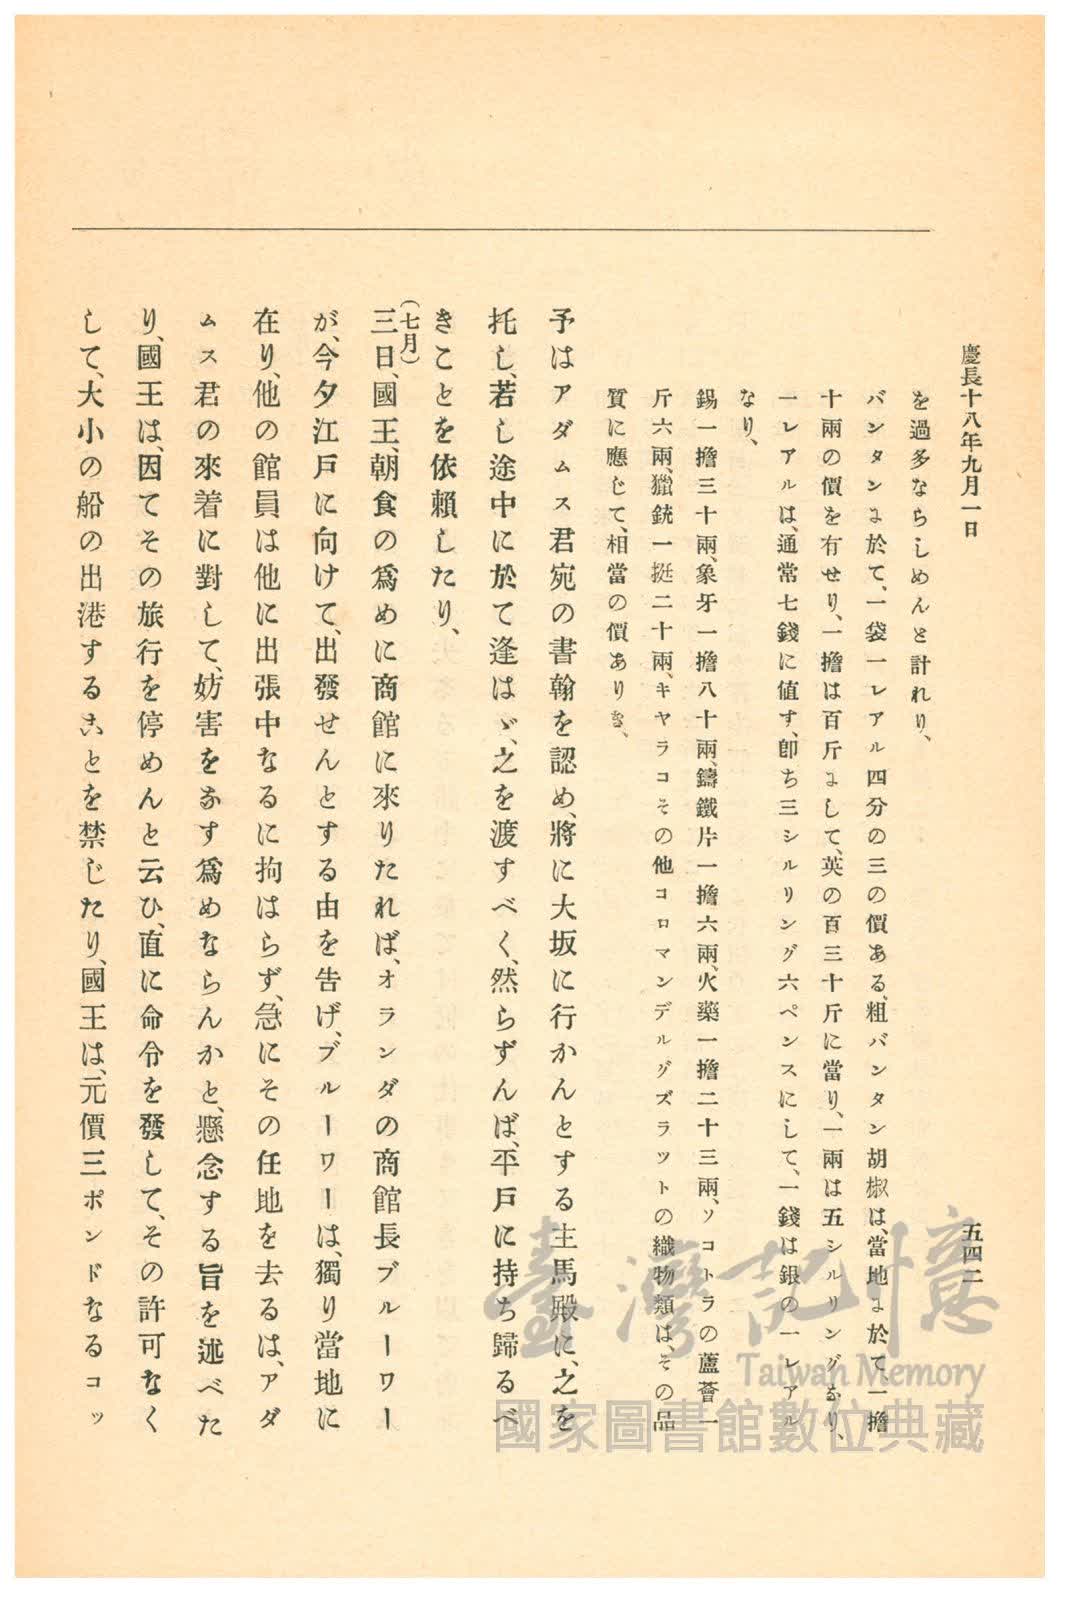 慶長十八年九月一日
五四二
を過多ならしめんと計れり、
バンタンに於て、一袋一レアル四分の三の價ある、粗バンタン胡椒は、當地に於て、一擔
十兩の價を有せり、一擔は百斤にして、英の百三十斤に當り、一兩は五シルリングなり、
一レアルは、通常七錢に値す、卽ち三シルリング六ペンスにして、一錢は銀の一レアル
なり、
錫一擔三十兩、象牙一擔八十兩、鑄鐵片一擔六兩、火藥一擔二十三兩、ソコトラの蘆薈一
斤六兩、獵銃一挺二十兩、キヤラコその他コロマンデルグズラツトの織物類は、その品
質に應じて、相當の價ありき、
予はアダムス君宛の書翰を認め、將に大坂に行かんとする主馬殿に、之を
托し、若し途中に於て逢はゞ、之を渡すべく、然らずんば、平戸に持ち歸るべ
きことを依賴したり、
(七月)
三日、國王、朝食の爲めに商館に來りたれば、オランダの商館長ブルーワー
が、今夕江戸に向けて、出發せんとする由を告げ、ブルーワーは、獨り當地に
在り、他の館員は他に出張中なるに拘はらず、急にその任地を去るは、アダ
ムス君の來着に對して、妨害をなす爲めならんかと、懸念する旨を述べた
り、國王は、因てその旅行を停めんと云ひ、直に命令を發して、その許可なく
して、大小の船の出港することを禁じたり、國王は、元價三ポンドなるコッ
臺灣記憶
Taiwan Memory
國家圖書館數位典藏